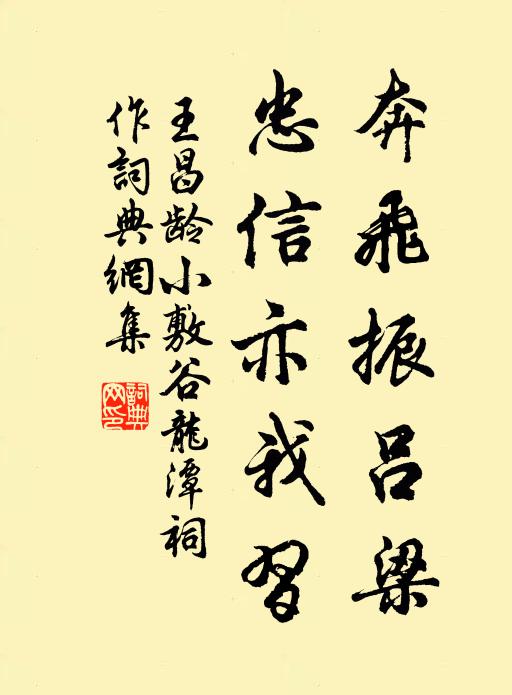 奔飛振呂梁
忠信亦我習
王昌龄小敷谷龍潭祠
作詞典網集
詞典
网印